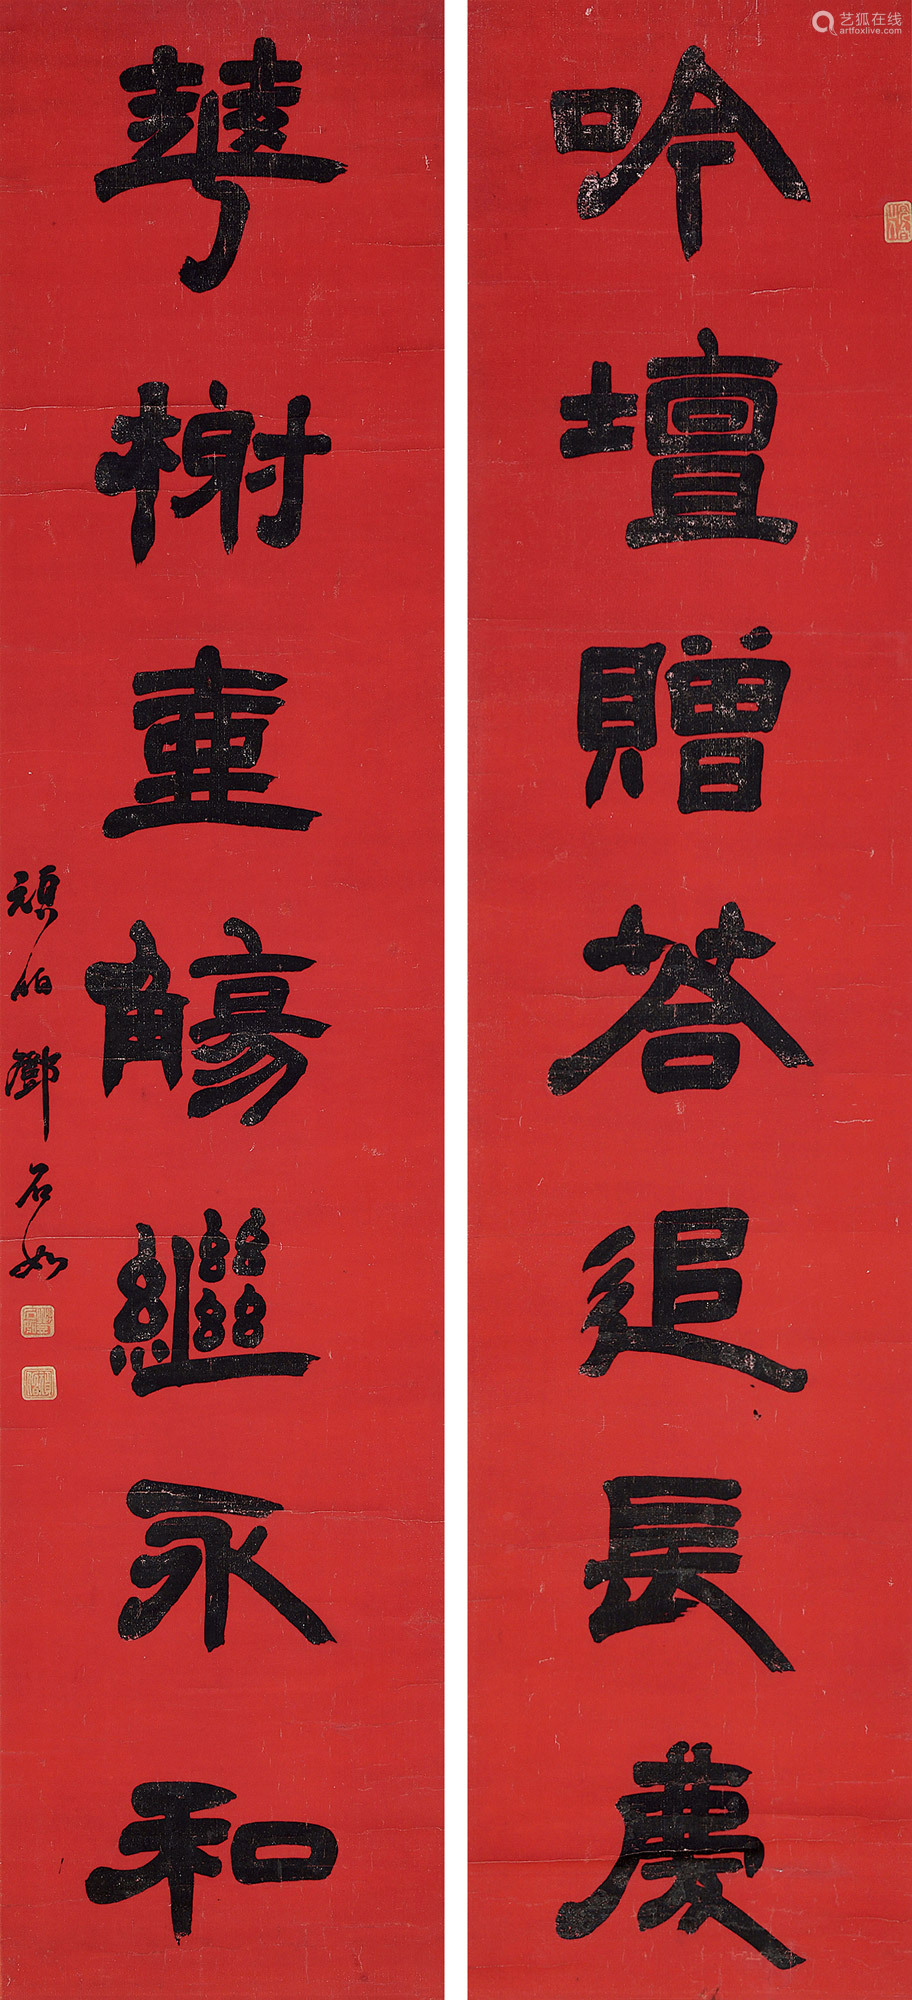 吟壇贈答追長慶
華榭壺觴繼永和
頑伯鄧石如
艺狐在线
artfoxlive.com